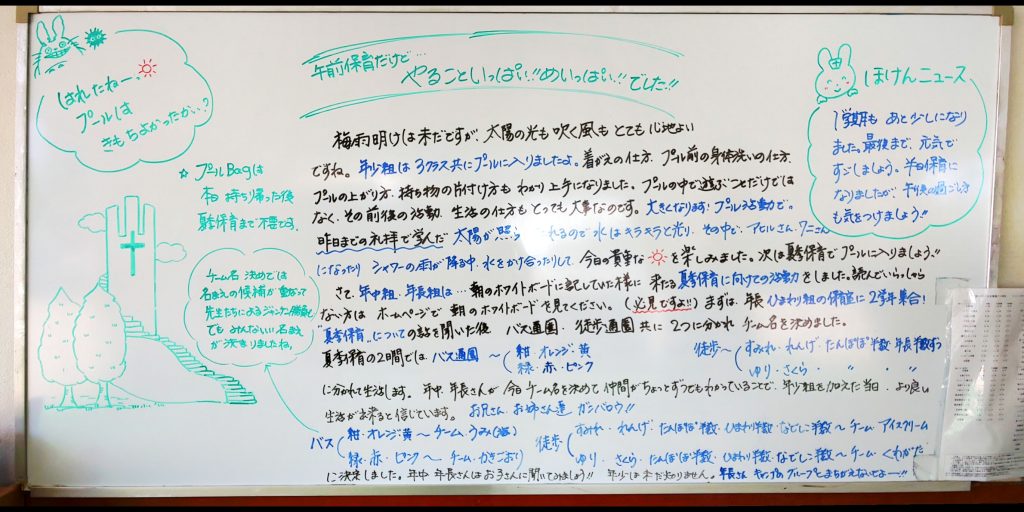 はれたねー、
プールは
きもちよかったかい？
午前保育だけど…
やることいっぱい!!めいっぱい!!でした!!
ほけんニュース
1学期も あと少しになり
ました。最後まで、元気で
すごしましょう。半日保育に
なりましたが、午後の過ごし方
も気をつけましょう!!
☆ プールBagは
本日持ち帰った後
夏季保育まで不要です。
チーム名 決めでは
名まえの候補が重なって
先生たちによるジャンケン勝負
とてもみんないい名まえ
が決まりましたね。
梅雨明けは未だですが、太陽の光も吹く風も とても 心地よい
ですね。年少組は 3クラス共に プールに入りましたよ。着がえの仕方、プール前の身体洗いの仕方、
プールの上がり方、持ち物の片付け方も わかり 上手になりました。プールの中で遊ぶことだけでは
なく、その前後の活動、生活の仕方も とっても 大事なのです。大きくなります! プール活動で。
昨日までの礼拝で学んだ 太陽が照らしてくれるので 水は キラキラと光り、その中で、アヒルさん、ワニさん
になったり シャワーの雨が降る中、水をかけ合ったりして、今日の貴重な を楽しみました。次は夏季保育でプールに入りましょう!!
さて、年中組・年長組は…朝のホワイトボードに記していた様に 来る夏季保育に向けての活動をしました。読んでいらっしゃら
ない方は ホームページで 朝のホワイトボードを見てください。(必見ですよ!!) まずは、年長 ひまわり組の保育室に 2学年集合!
"夏季保育"についての話を聞いた後 バス通園・徒歩通園 共に 2つに分かれ チーム名を決めました。
夏季保育の2日間では、バス通園 〜 紺・オレンジ・黄
緑・赤・ピンク
徒歩〜 すみれ・れんげ・たんぽぽ半数・年長半数ずつ
ゆり・さくら・ 〃 ・ 〃
に分かれて生活します。年中、年長さんが 今 チーム名を決めて 仲間がちょっとずつでもわかっていることで、年少組を加えた当日、より良い
生活が出来ると信じています。お兄さん・お姉さん達 ガンバロウ!!
バス 紺・オレンジ・黄 〜 チーム うみ(海)
緑・赤・ピンク 〜 チーム・かきごおり
徒歩 すみれ・れんげ・たんぽぽ半数・ひまわり半数・なでしこ半数 〜 チーム・アイスクリーム
ゆり・さくら・たんぽぽ半数・ひまわり半数・なでしこ半数 〜 チーム・くわがた
に決定しました。年中 年長さんは お子さんに聞いてみましょう!! 年少は未だ知りません。年長さん キャンプのグループとまちがえないでよーー!!